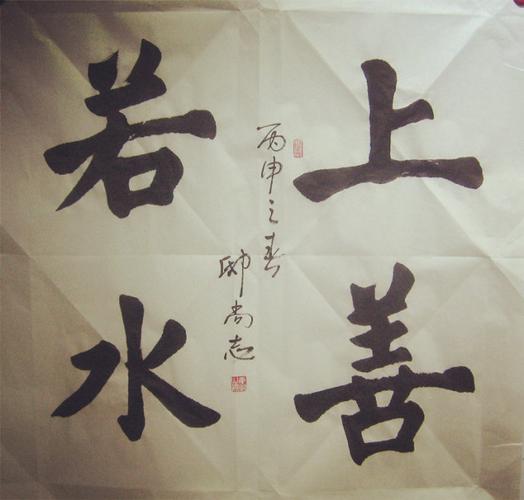 上善
若水
丙申之春
邸尚志